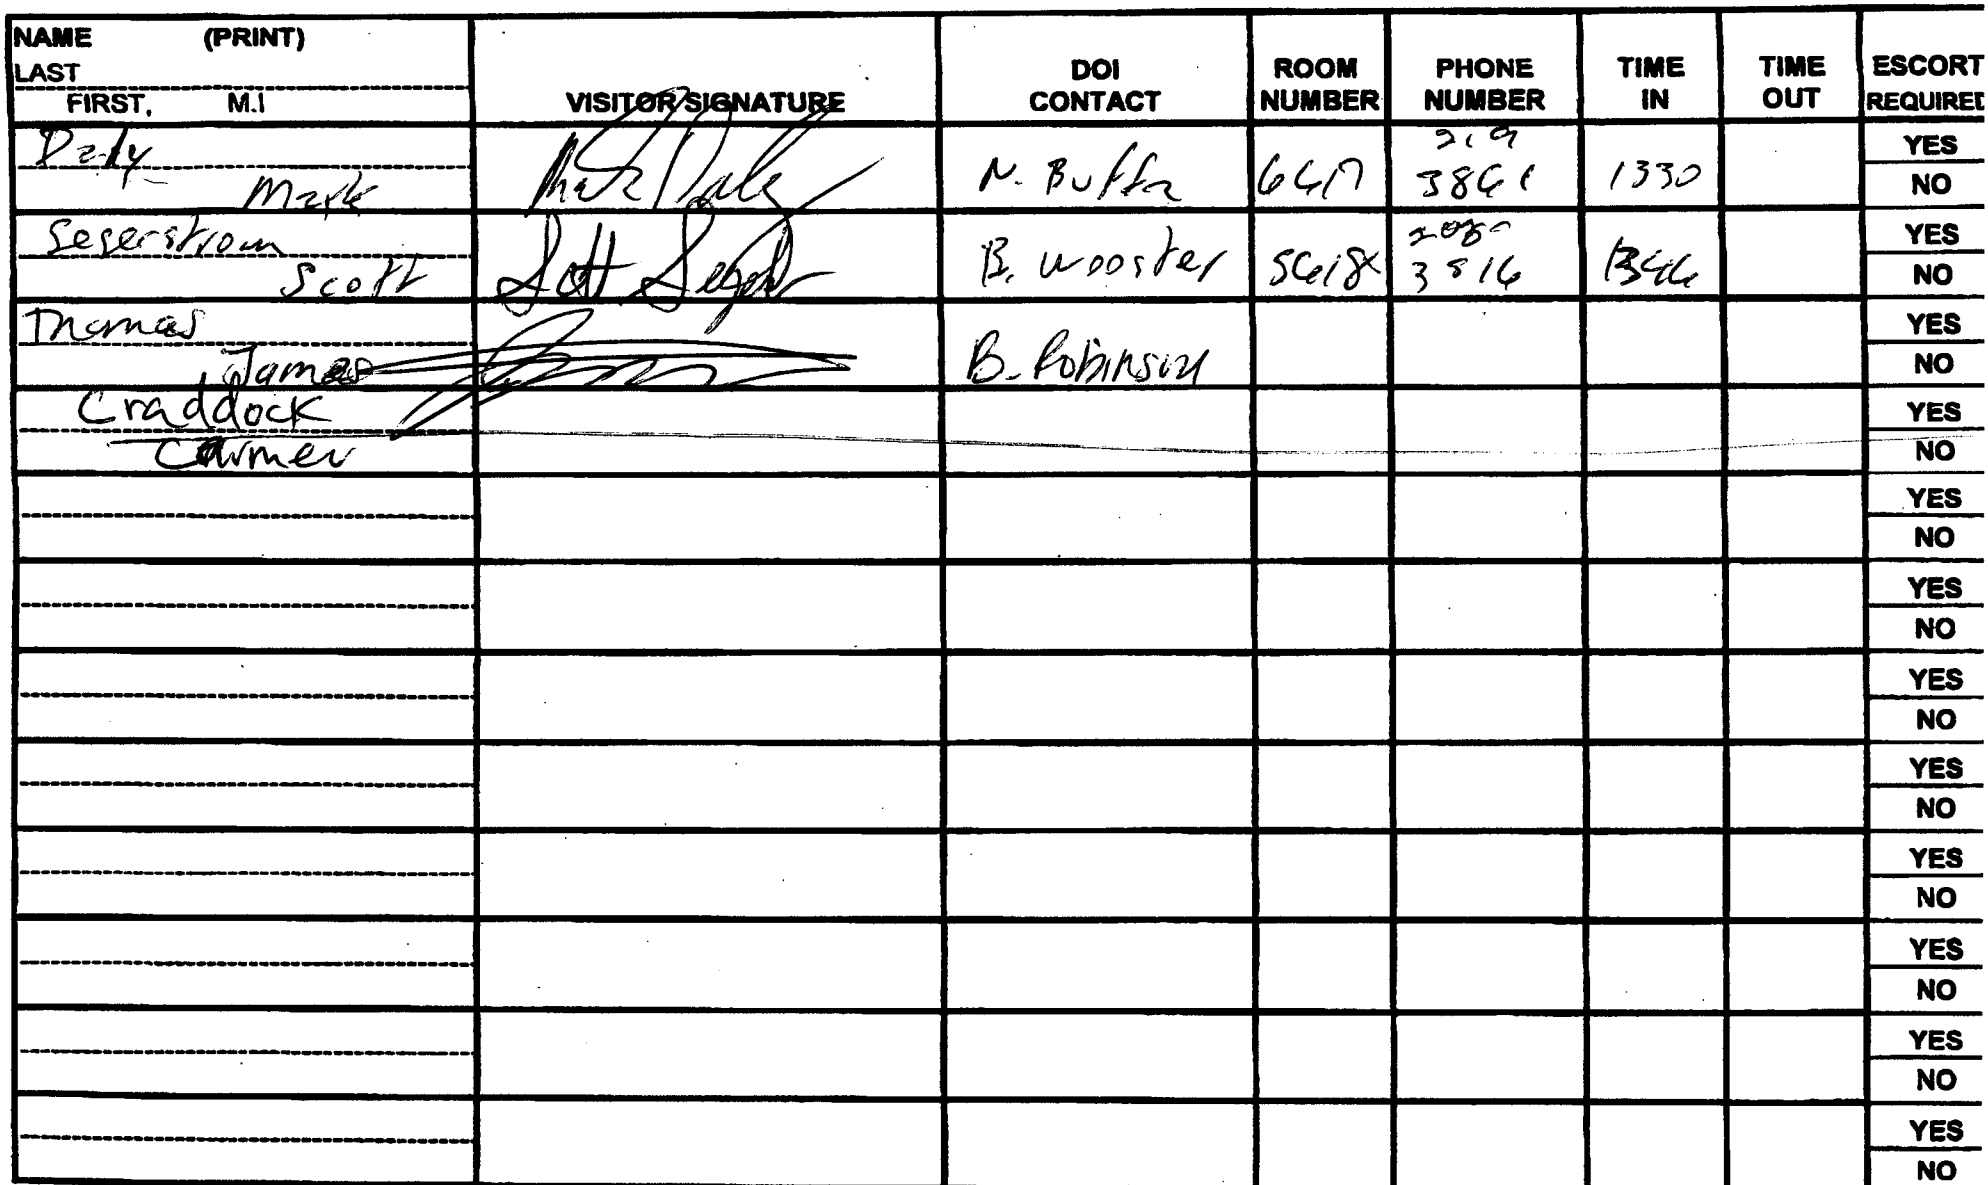 NAME (PRINT)
LAST
FIRST, M.I
VISITOR SIGNATURE
DOI
CONTACT
ROOM
NUMBER
PHONE
NUMBER
TIME
IN
TIME
OUT
ESCORT
REQUIRED
Daly
Mark
N. Buffa
219
3861
1330
YES
NO
Segerstrom
Scott
Scott
B. Wooster
3816
YES
NO
Thomas
James
B. Robinson
YES
NO
Craddock
YES
NO
YES
NO
YES
NO
YES
NO
YES
NO
YES
NO
YES
NO
YES
NO
YES
NO